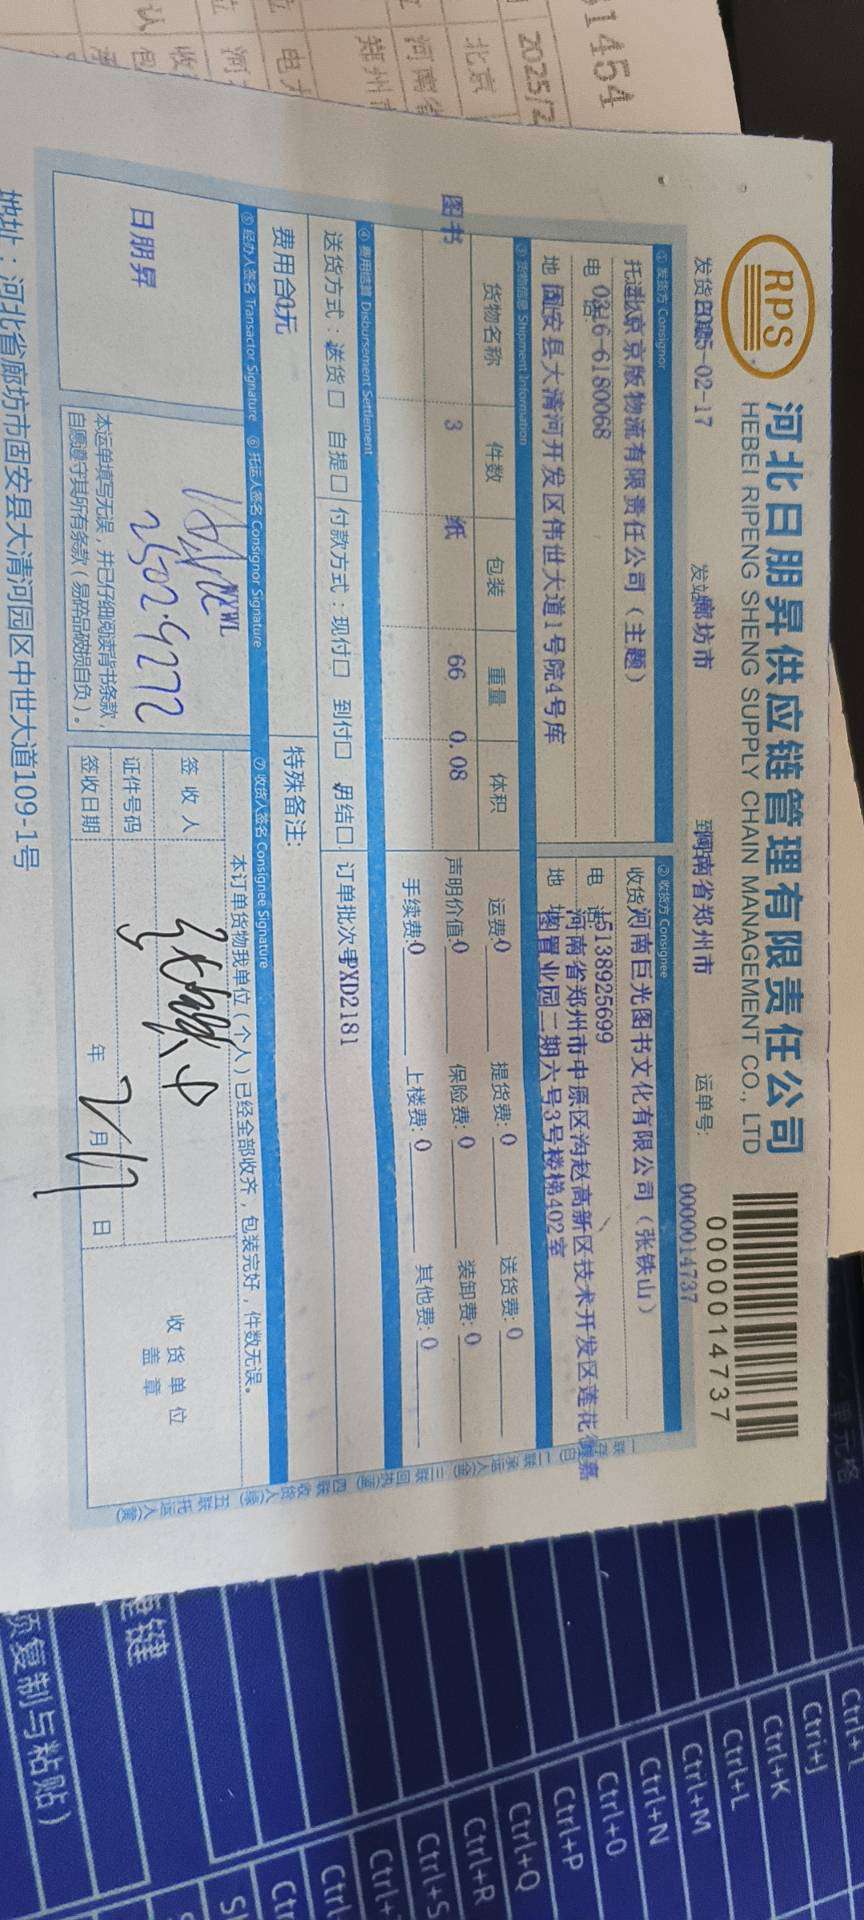 RPS
河北日朋昇供应链管理有限责任公司
HEBEI RIPENG SHENG SUPPLY CHAIN MANAGEMENT CO., LTD
0000014737
发货日期2025-02-17
发站廊坊市
到站河南省郑州市
运单号:
0000014737
① 发货方 Consignor
② 收货方 Consignee
托运人北京京版物流有限责任公司(主题)
收货人河南巨光图书文化有限公司(张铁山)
电 话0316-6180068
电 话15138925699
地 址固安县大清河开发区伟世大道1号院4号库
地 址
河南省郑州市中原区沟赵高新区技术开发区莲花街嘉
图置业园二期六号3号楼梯402室
③ 货物信息 Shipment Information
货物名称 件数 包装 重量 体积
图书 3 纸 66 0.08
运费:0 提货费:0 送货费:0
声明价值:0 保险费:0 装卸费:0
手续费:0 上楼费:0 其他费:0
④ 费用结算 Disbursement Settlement
送货方式:送货□ 自提□ 付款方式:现付□ 到付□ 月结□
订单批次号PXD2181
费用合计0元
特殊备注:
⑤ 经办人签名 Transactor Signature
⑥ 托运人签名 Consignor Signature
⑦ 收货人签名 Consignee Signature
日朋昇
NXWL
本运单填写无误,并已仔细阅读背书条款,
自愿遵守其所有条款(易碎品破损自负)。
本订单货物我单位(个人)已经全部收齐,包装完好,件数无误。
签 收 人
证件号码
签收日期
年 2 月 17 日
收货单位
盖章
一联存根(白) 二联承运人(金) 三联回执(蓝) 四联收货人(绿) 五联托运人(黄)
地址:河北省廊坊市固安县大清河园区中世大道109-1号
31454
2025/2
北京
河南省
郑州市
电力
Ctrl+J
Ctrl+K
Ctrl+L
Ctrl+M
Ctrl+N
Ctrl+O
Ctrl+P
Ctrl+Q
Ctrl+R
Ctrl+S
复制与粘贴)
单元格